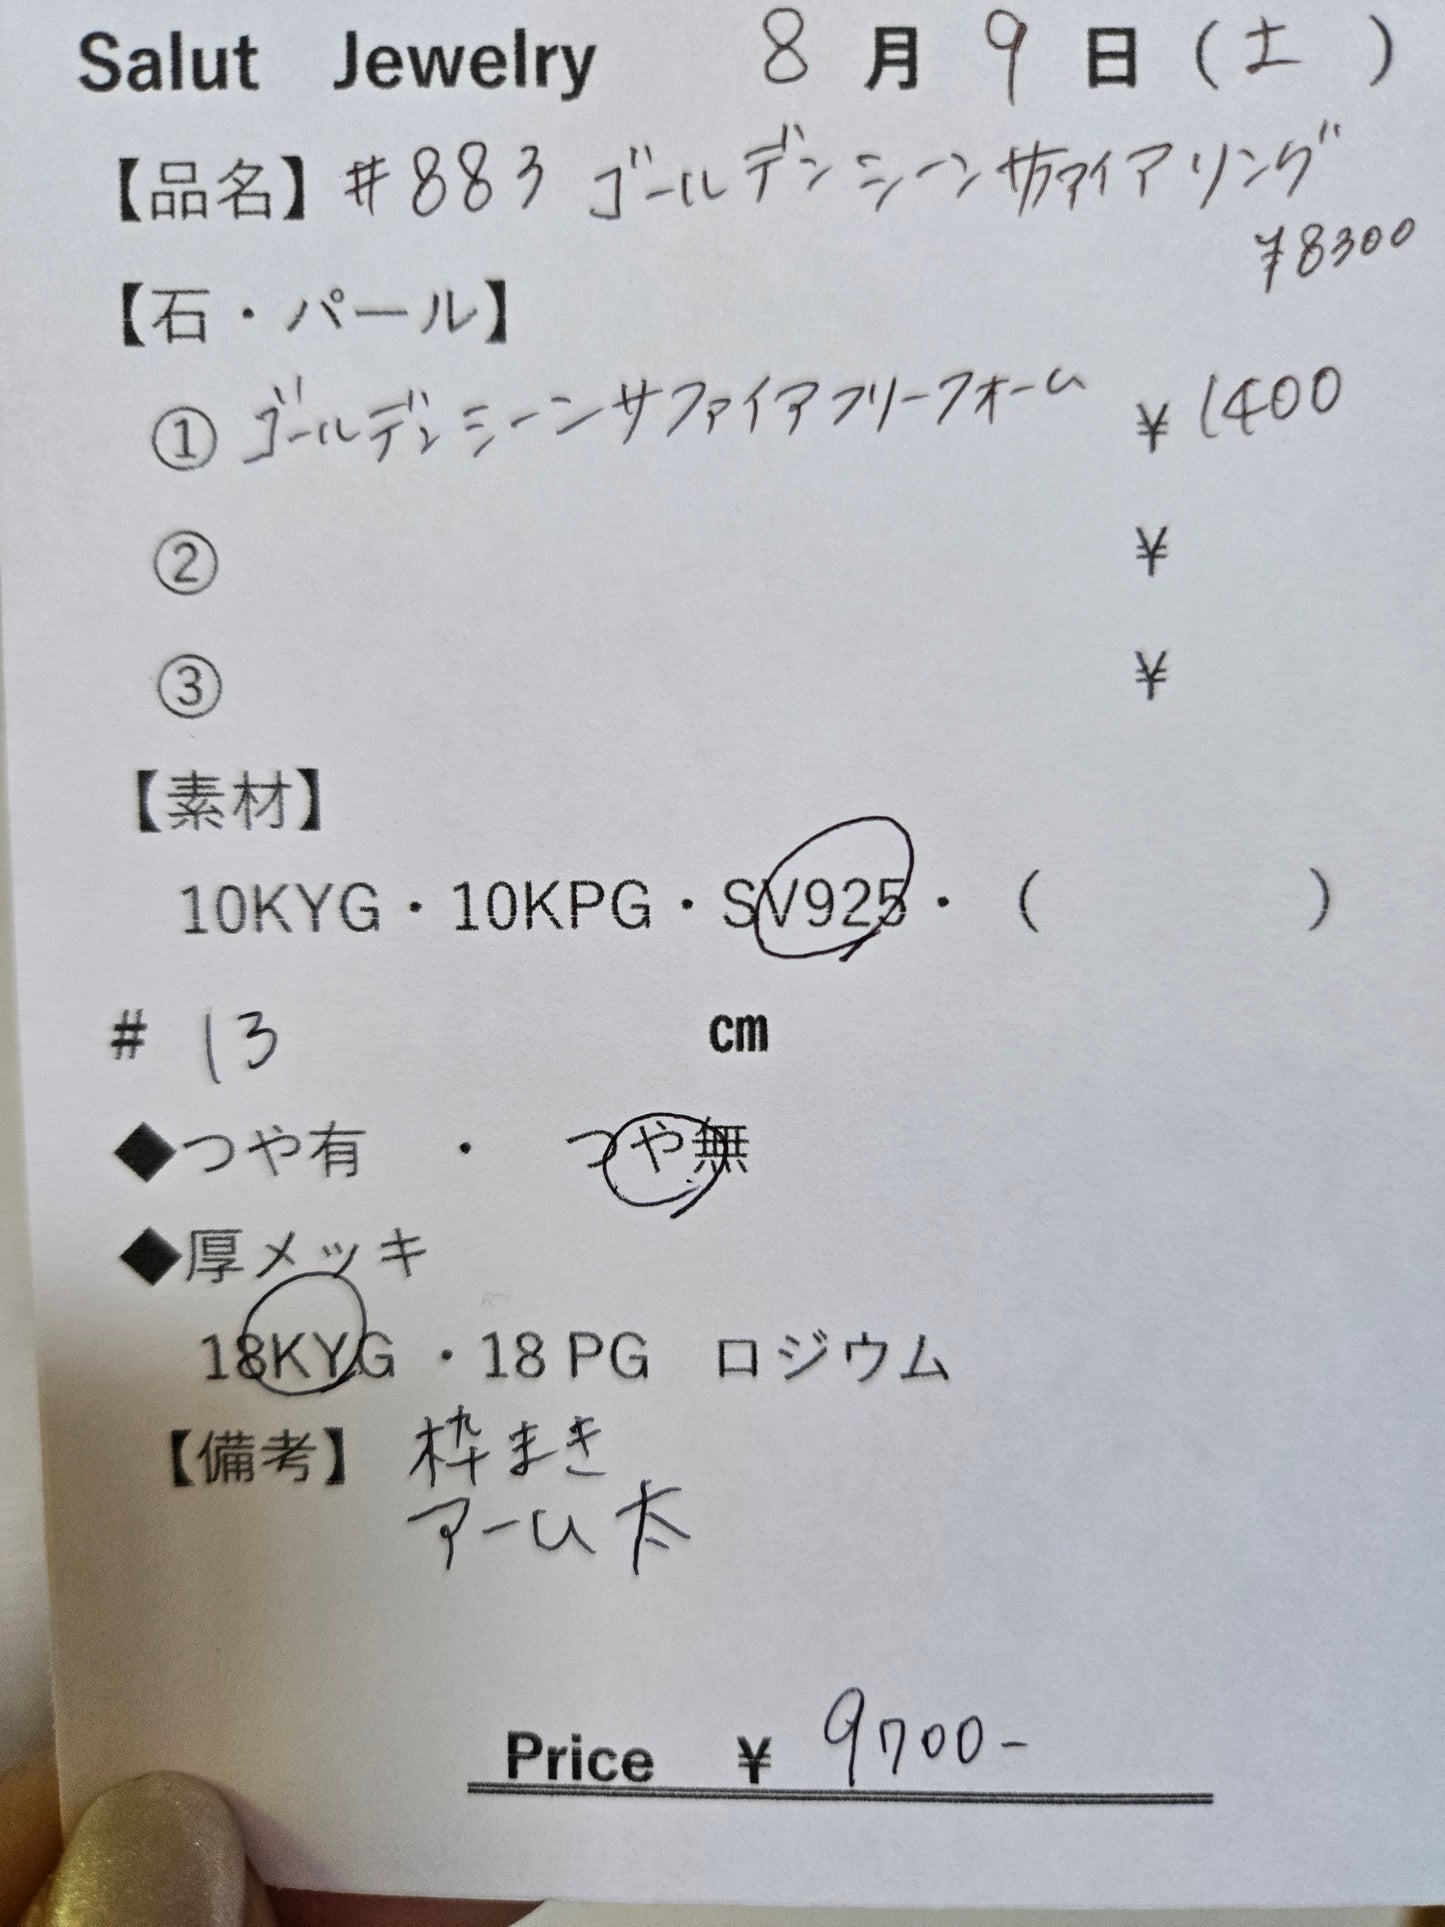 Salut Jewelry 8月9日(土)
【品名】#883 ゴールデンシーンサファイアリング
¥8300
【石・パール】
① ゴールデンシーンサファイアフリーフォーム ¥1400
② ¥
③ ¥
【素材】
10KYG・10KPG・SV925・( )
# 13 cm
◆つや有 ・ つや無
◆厚メッキ
18KYG ・18 PG ロジウム
【備考】 枠まき
アーム太
Price ¥ 9700-